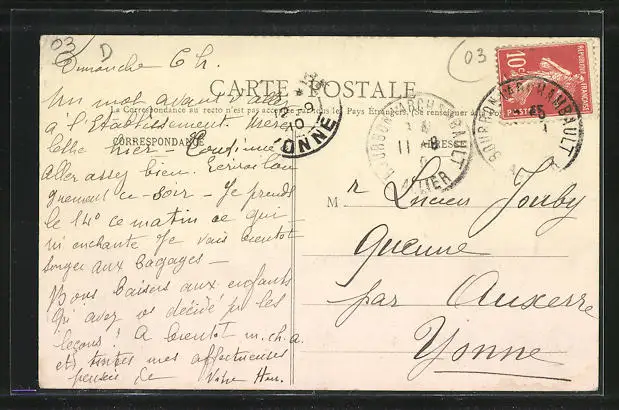 03
D
03
Dimanche 6 h.
CARTE POSTALE
La Correspondance au recto n'est pas acceptée par tous les Pays Étrangers. (Se renseigner à la Poste)
CORRESPONDANCE
ADRESSE
RÉPUBLIQUE FRANÇAISE
10
POSTES
BOURBON-L'ARCHAMBAULT
ALLIER
BOURBON-L'ARCHAMBAULT
YONNE
Un mot avant d'aller
à l'Etablissement.
hier - Continue
aller assez bien. Ecrirai lon
guement ce soir - Je prends
le 14e ce matin ce qui
m'enchante Je vais bientot
songer aux bagages -
Bons baisers aux enfants
Qu'avez vs décidé pr les
leçons ? A bientot m. ch. a.
et toutes mes affectueuses
pensées de Votre
Mr Lucien Jouby
Queune
par Auxerre
Yonne